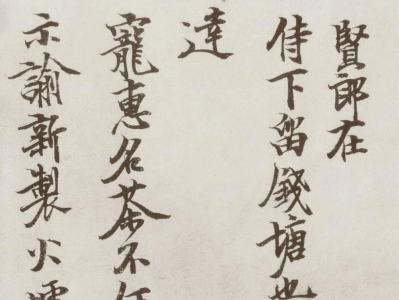 賢郎在
侍下留錢塘也
達
寵惠名茶不任
示諭新製火